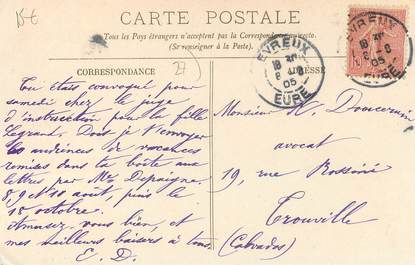 15€
CARTE POSTALE
Tous les Pays étrangers n'acceptent pas la Correspondance au recto.
(Se renseigner à la Poste).
CORRESPONDANCE
27
ADRESSE
EVREUX
EURE
EVREUX
EURE
Tu étais convoqué pour
samedi chez le juge
d'instruction pour la fille
Legrand. Dois je t'envoyer
les audiences de vacances
remises dans ta boîte aux
lettres par Me Depaigne.
8, 9 et 10 août, puis le
15 octobre.
Amusez vous bien, et
mes meilleurs baisers à tous.
E. D.
Monsieur H. Doucerain
avocat
19, rue Rossini
Trouville
(Calvados)